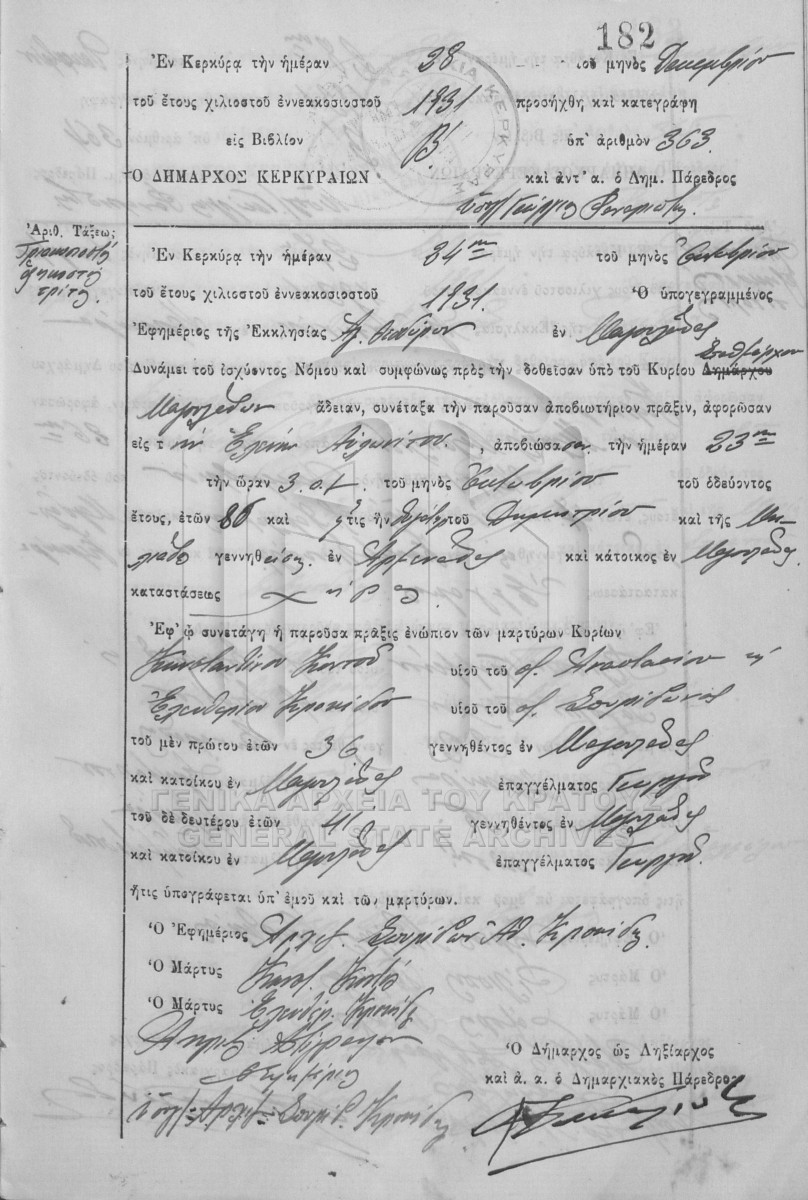 182
Ἐν Κερκύρᾳ τὴν ἡμέραν 28 τοῦ μηνὸς Δεκεμβρίου
τοῦ ἔτους χιλιοστοῦ ἐννεακοσιοστοῦ 1931 προσήχθη καὶ κατεγράφη
εἰς Βιβλίον Β' ὑπ' ἀριθμὸν 363.
Ο ΔΗΜΑΡΧΟΣ ΚΕΡΚΥΡΑΙΩΝ καὶ ἀντ' α. ὁ Δημ. Πάρεδρος
Ἀριθ. Τάξεως
Τριακοσιοστὴ
ἑξηκοστὴ
τρίτη.
Ἐν Κερκύρᾳ τὴν ἡμέραν 24ην τοῦ μηνὸς Ὀκτωβρίου
τοῦ ἔτους χιλιοστοῦ ἐννεακοσιοστοῦ 1931. Ὁ ὑπογεγραμμένος
Ἐφημέριος τῆς Ἐκκλησίας Ἁγ. ἐν Μαγουλάδες
Δυνάμει τοῦ ἰσχύοντος Νόμου καὶ συμφώνως πρὸς τὴν δοθεῖσαν ὑπὸ τοῦ Κυρίου Δημάρχου Σταθμάρχου
Μαγουλάδων ἄδειαν, συνέταξα τὴν παροῦσαν ἀποβιωτήριον πρᾶξιν, ἀφορῶσαν
εἰς τὴν Ἑλένην Αὐλωνίτου, ἀποβιώσασαν τὴν ἡμέραν 23ην
τὴν ὥραν 3 π.μ. τοῦ μηνὸς Ὀκτωβρίου τοῦ ὁδεύοντος
ἔτους, ἐτῶν καὶ ἥτις ἦν θυγάτηρ τοῦ Δημητρίου καὶ τῆς
γεννηθείσης ἐν Ἀρμενάδες καὶ κάτοικος ἐν Μαγουλάδες
καταστάσεως χήρα
Ἐφ' ᾧ συνετάγη ἡ παροῦσα πρᾶξις ἐνώπιον τῶν μαρτύρων Κυρίων
Κωνσταντίνου Κοντοῦ υἱοῦ τοῦ Ἀναστασίου
Ἐλευθερίου Κροκίδου υἱοῦ τοῦ Σπυρίδωνος
τοῦ μὲν πρώτου ἐτῶν 36 γεννηθέντος ἐν Μαγουλάδες
καὶ κατοίκου ἐν Μαγουλάδες ἐπαγγέλματος Γεωργοῦ
ΓΕΝΙΚΑ ΑΡΧΕΙΑ ΤΟΥ ΚΡΑΤΟΥΣ
τοῦ δὲ δευτέρου ἐτῶν 41 γεννηθέντος ἐν Μαγουλάδες
GENERAL STATE ARCHIVES
καὶ κατοίκου ἐν Μαγουλάδες ἐπαγγέλματος Γεωργοῦ.
ἥτις ὑπογράφεται ὑπ' ἐμοῦ καὶ τῶν μαρτύρων.
Ὁ Ἐφημέριος Σπυρίδων Κροκίδης
Ὁ Μάρτυς Κωνστ. Κοντὸς
Ὁ Μάρτυς Ἐλευθέρ. Κροκίδης
Ἀκριβὲς Ἀντίγραφον
Ὁ Ἐφημέριος
Ὁ Δήμαρχος ὡς Ληξίαρχος
καὶ ἀ. ἀ. ὁ Δημαρχιακὸς Πάρεδρος